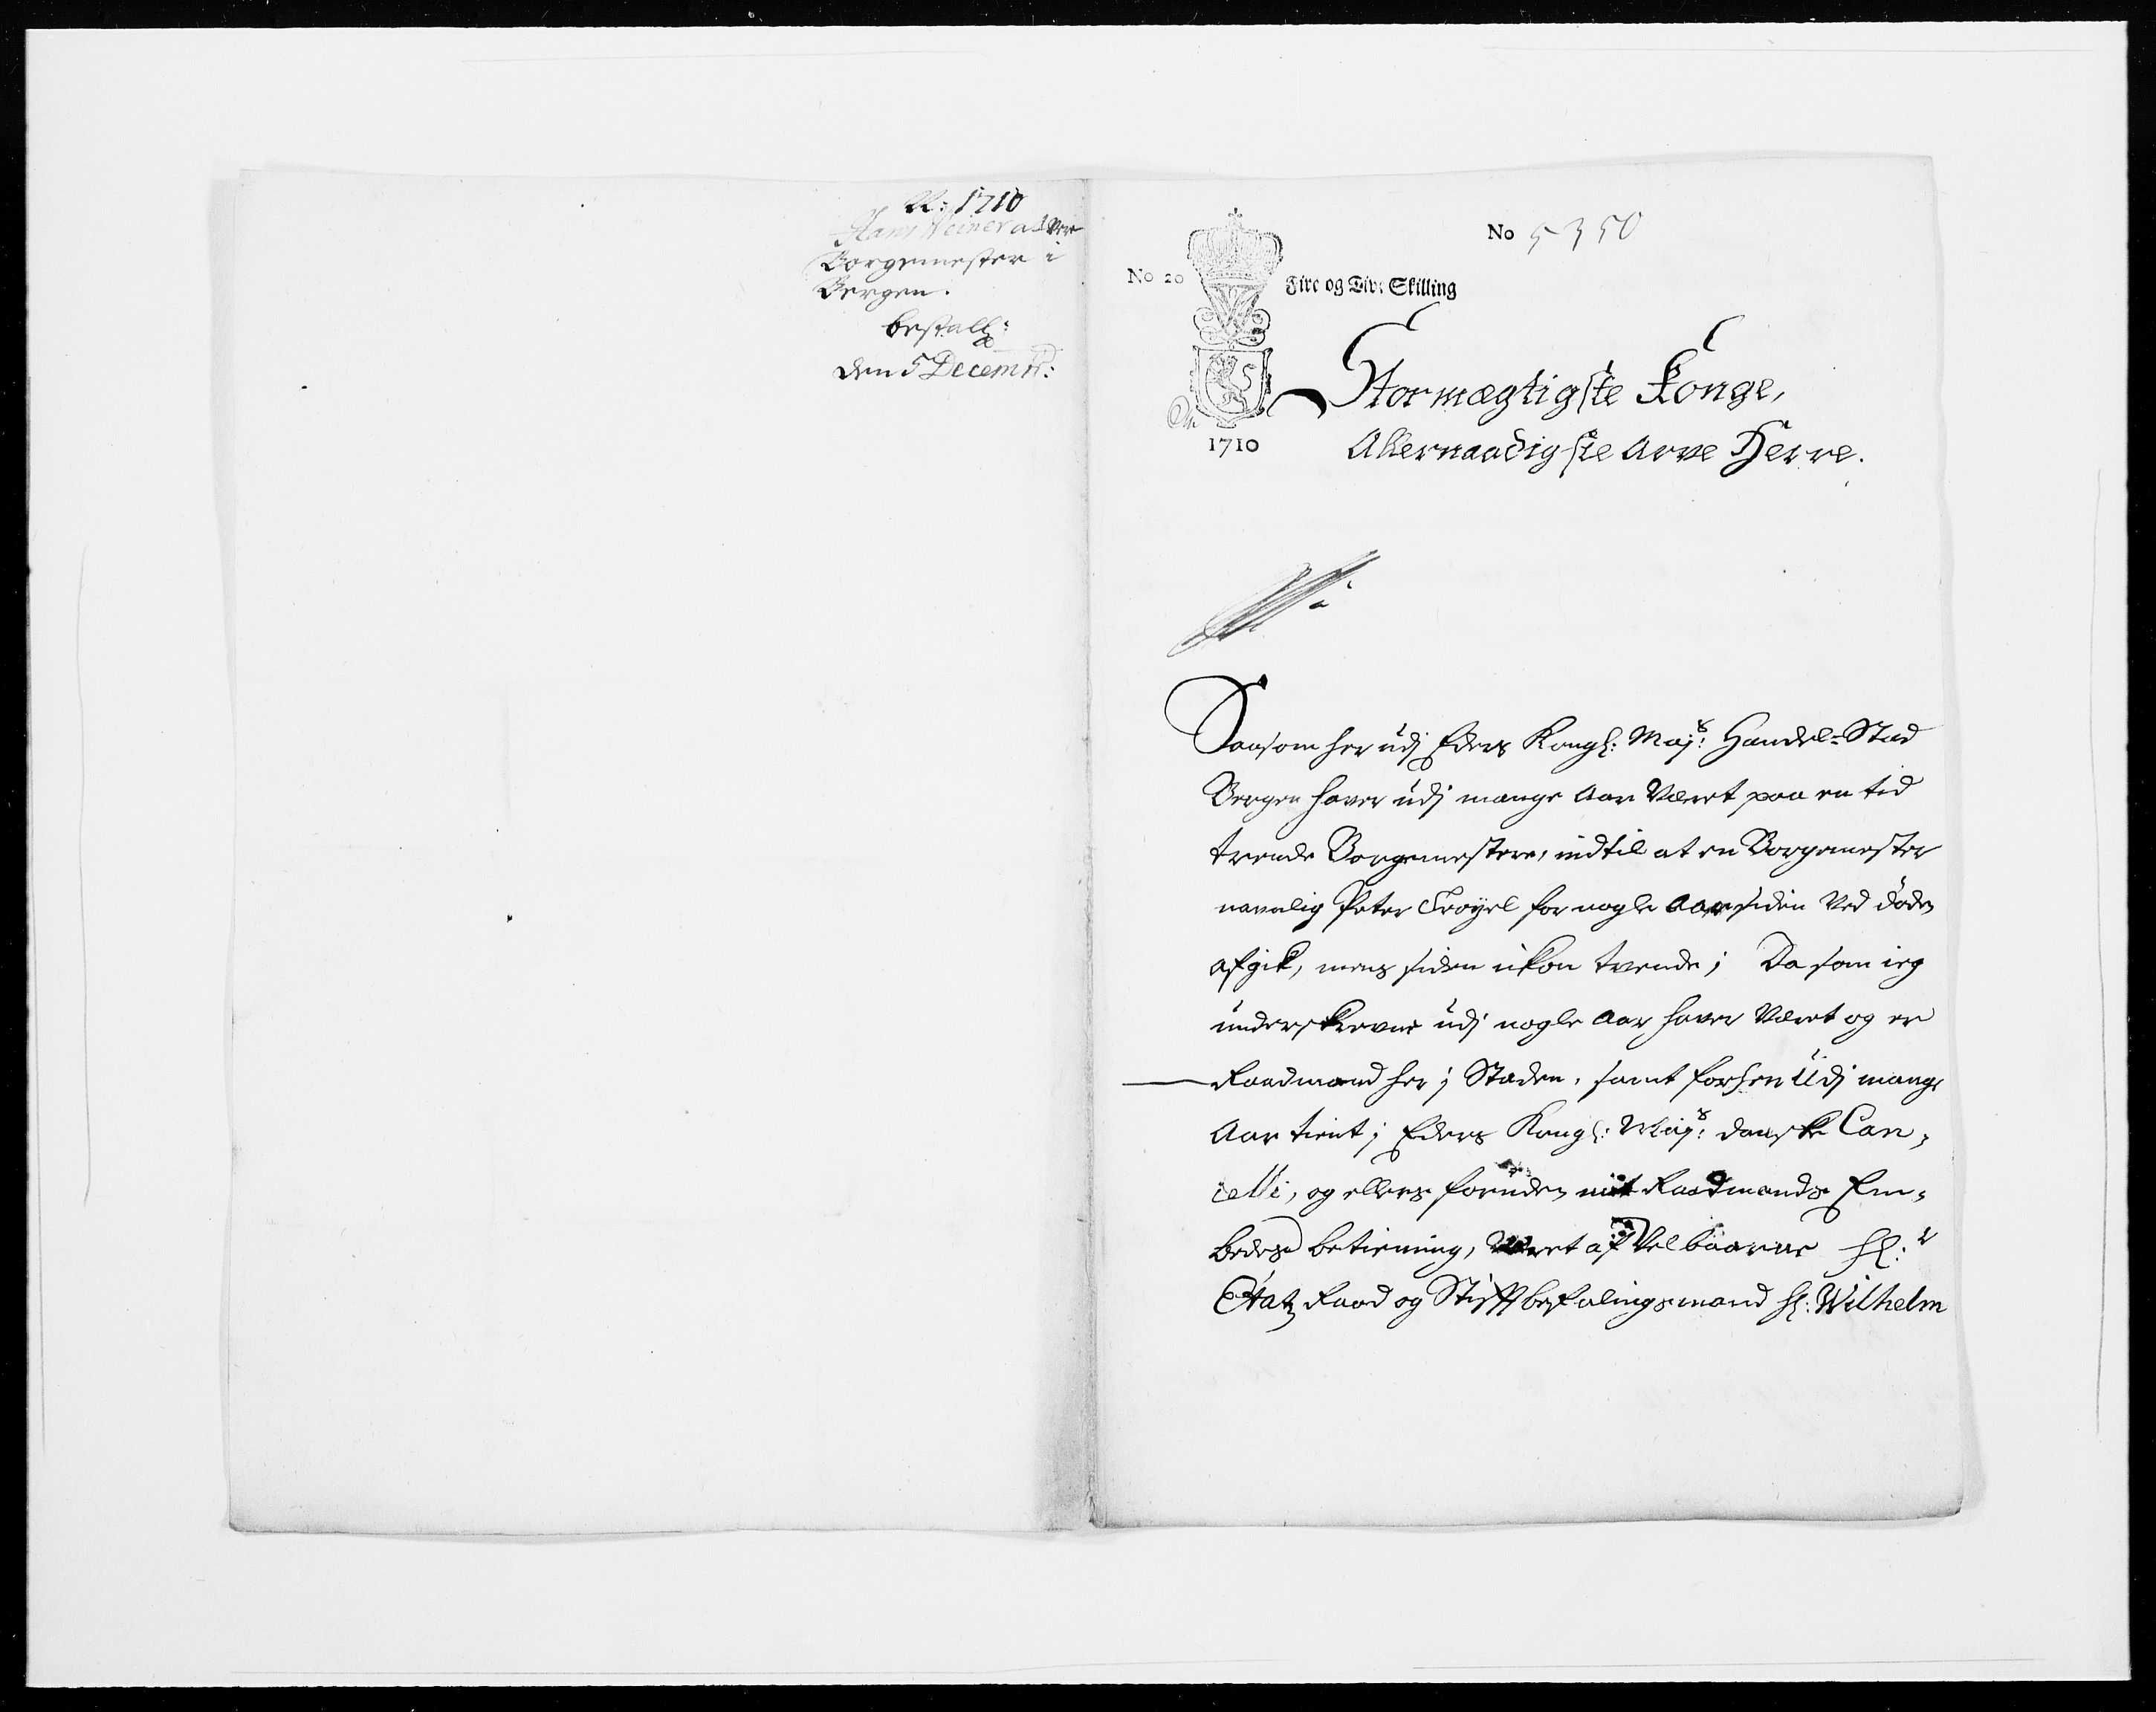 A: 1710
Hans Weiner at være
Borgemester i
Bergen.
bestall:
den 5 Decembr:
No 5350
No 20
Fire og Tive Skilling
1710
Stormægtigste Konge,
Allernaadigste Arve Herre.
Saasom her udj Eders Kongl: Mayts: Handel-Stad
Bergen haver udj mange Aar Været paa en tid
trende Borgemestere, indtil at en Borgemester
navnlig Peter Frøyel for nogle Aar siden Ved døden
afgik, mens siden ikon tvende; Da som ieg
underskrevne udj nogle Aar haver Været og er
Raadmand her j Staden, samt forhen Udj mange
Aar tient j Eders Kongl: Mayts: danske Can-
celli, og ellers foruden mit Raadmands Em-
bedes betiening, Været af Velbaarne Hr:
Etatz Raad og Stifftbefalingsmand Hr: Wilhelm